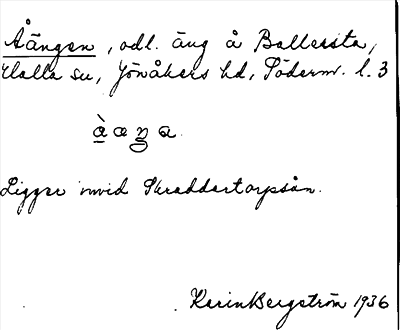 Åängen, odl. äng å Ballersta,
Halla sn, Jönåkers hd, Söderm. l. 3
à æ ŋ a
Ligger invid Skraddartorpsån.
Karin Bergström 1936